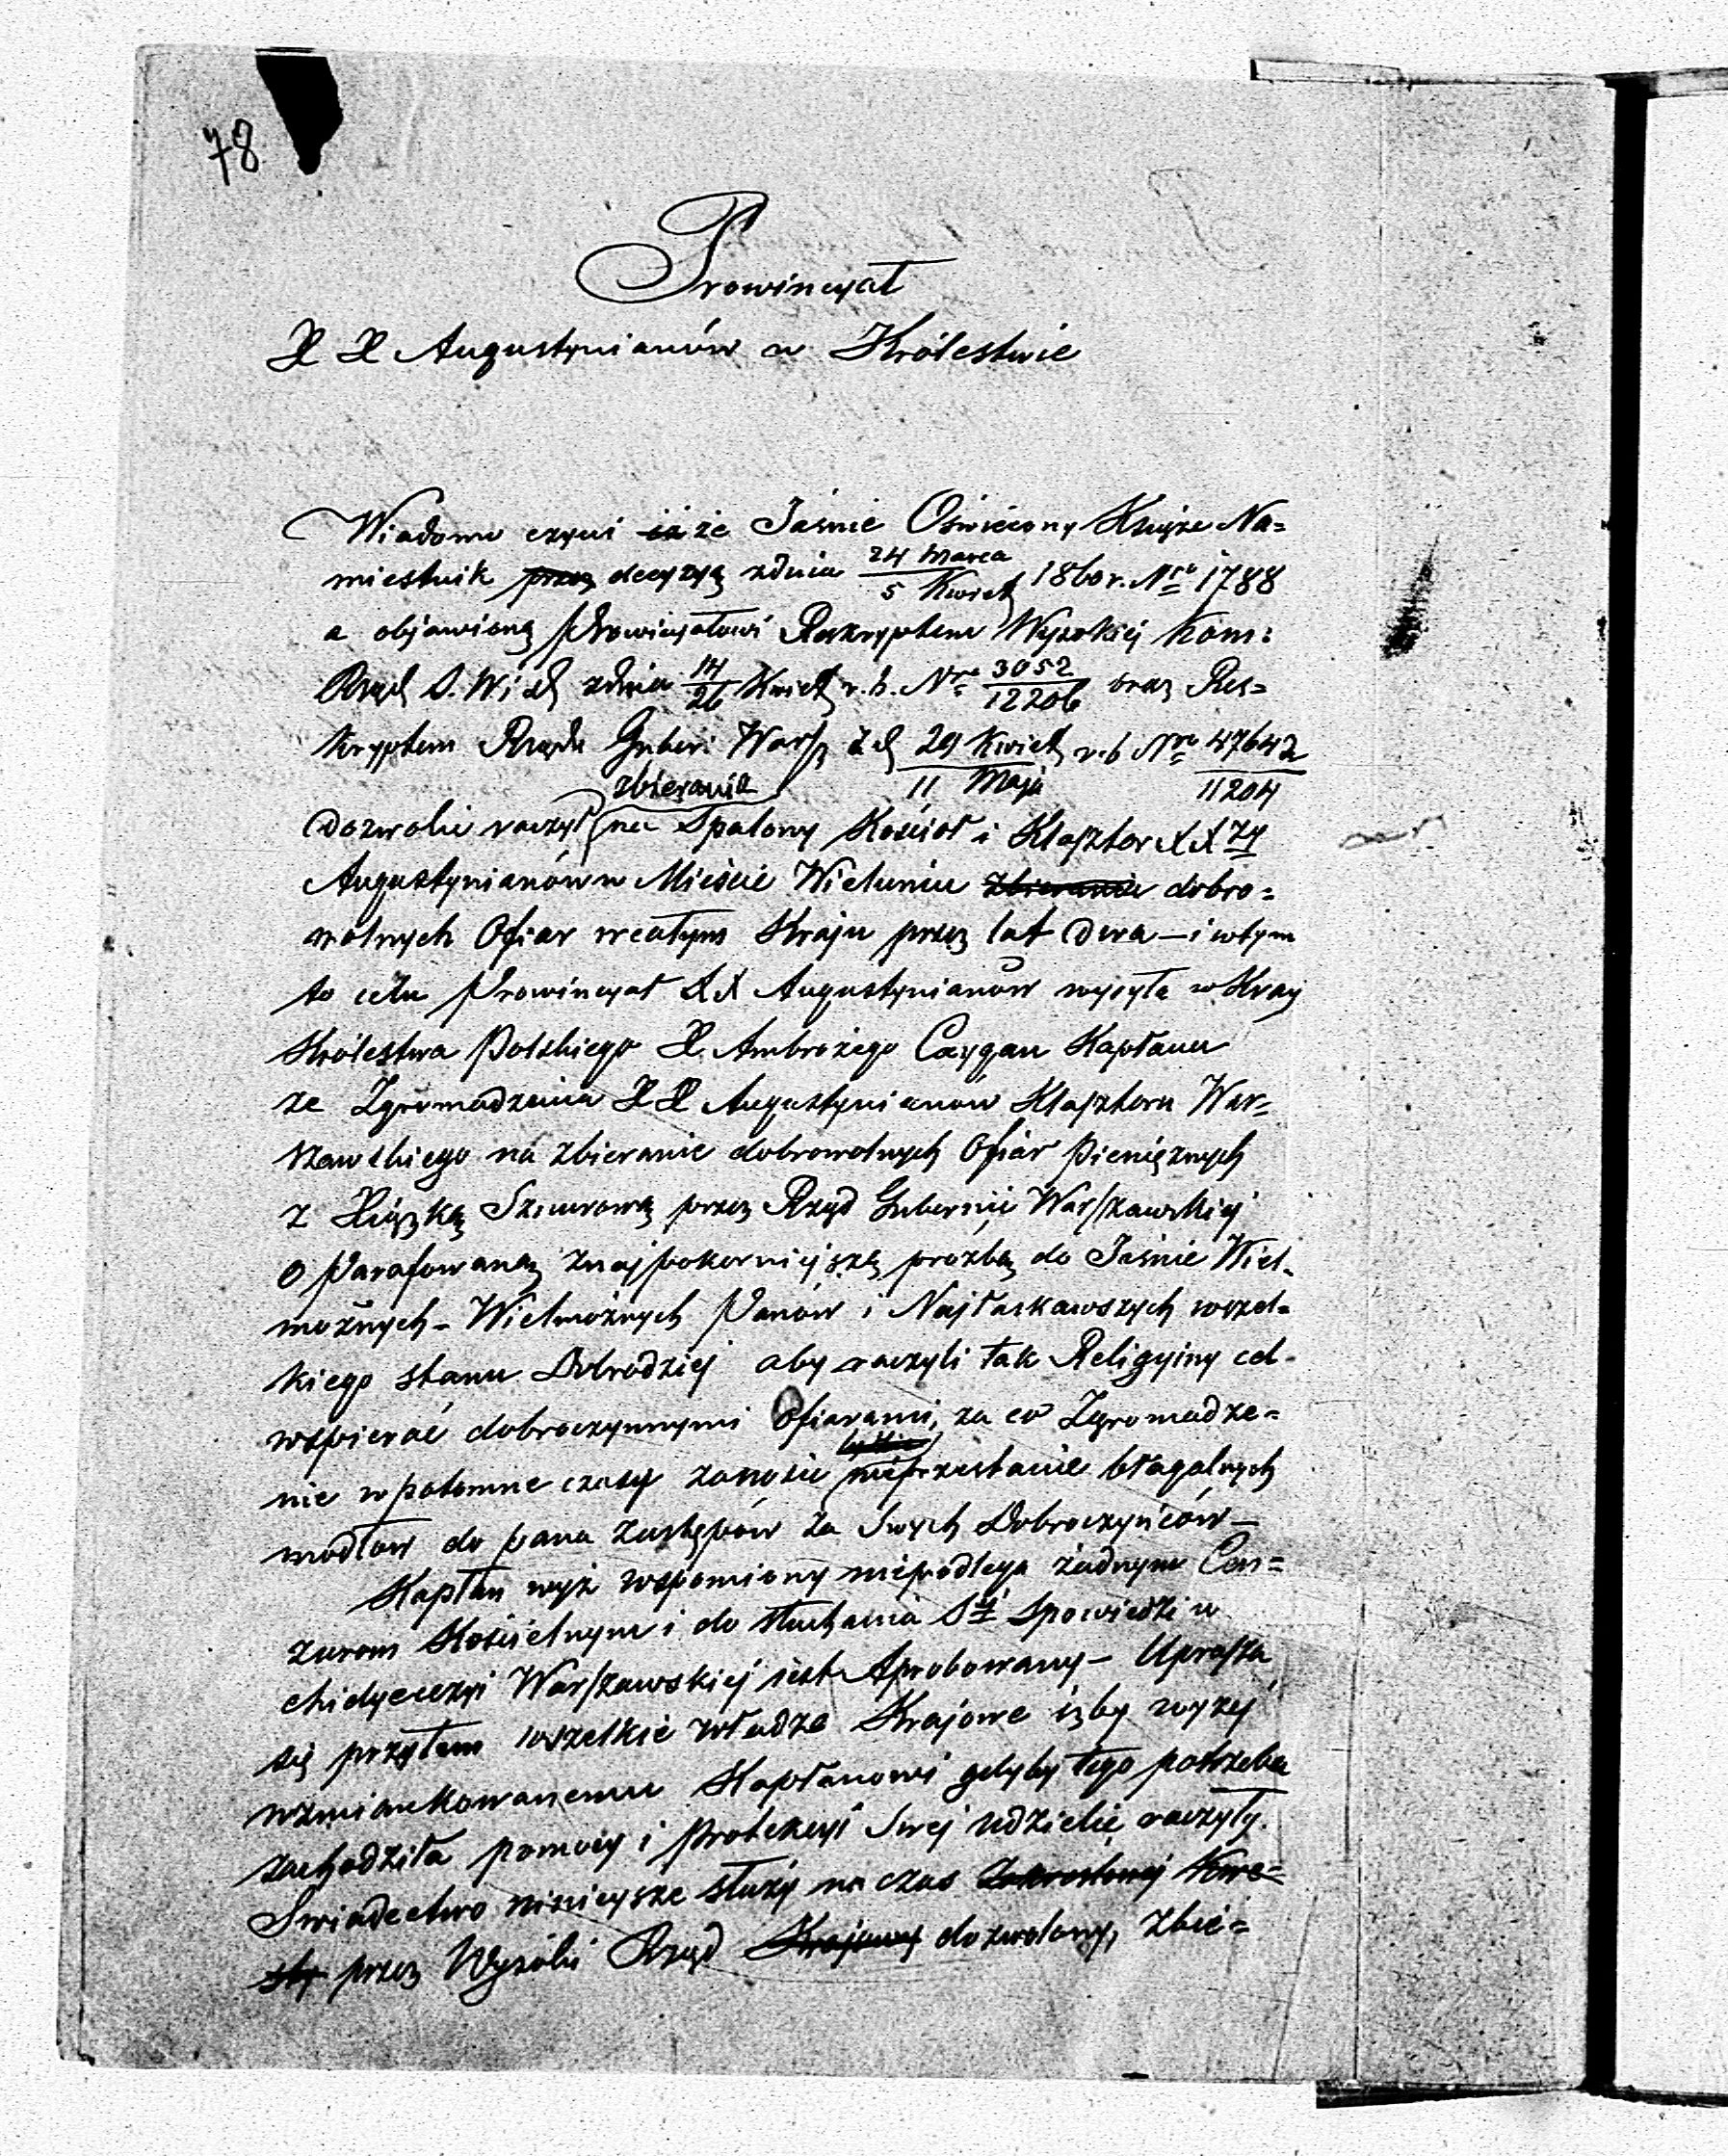 78
Prowincyał
XX Augustynianów w Królestwie
Wiadomo czyni iż że Jaśnie Oświecony Książe Na=
miestnik przez decyzyą zdnia 24 Marca / 5 Kwiet 1860 r. Nro 1788
a objawioną Prowincyałowi Reskryptem Wysokiéj Kom:
Rząd S. W i D zdnia 14/26 Kwiet r. b. Nro 3052/12206 oraz Res=
kryptem Rządu Guber: Warsz z d 29 Kwiet / 11 Maja r. b Nro 47642/11204
zbierania
dozwolić raczył na Spalony Kościoł i Klasztor XX
Augustynianów w Mieście Wieluniu zbierania dobro=
wolnych Ofiar w całym Kraju przez lat dwa – i w tym
to celu Prowincyał XX Augustynianów wysyła w Kray
Królestwa Polskiego X. Ambrożego Caygan Kapłana
ze Zgromadzenia XX Augustynianów Klasztoru War=
szawskiego na zbieranie dobrowolnych Ofiar pieniężnych
z Xiążką Sznurową przez Rząd Gubernii Warszawskiéj
O Parafowaną z najpokorniejszą prozbą do Jaśnie Wiel=
możnych – Wielmożnych Panów i Najłaskawszych wszel=
kiego stanu Dobrodziej aby raczyli tak Religyiny cel
wspierać dobroczynnymi Ofiarami, za co Zgromadze=
nie w potomne czasy zanosić nieprzestanie błagalnych
modłow do pana Zastępów za Swych Dobroczyńców –
Kapłan wyż wspomiony niepodlega żadnym Cen=
zurom Kościelnym i do słuchania Sej Spowiedzi w
chidyecezyi Warszawskiéj iest Aprobowany – Uprasza
się przytem wszelkie władze Krajowe iżby wyżej
wzmiankowanemu Kapłanowi gdyby tego potrzeba
zachodziła pomocy i protekcyi Swej udzielić raczyły.
Swiadectwo ninieysze służy na czas Kwe=
sty przez Wysoki Rząd Krajowy dozwolony, zbie=